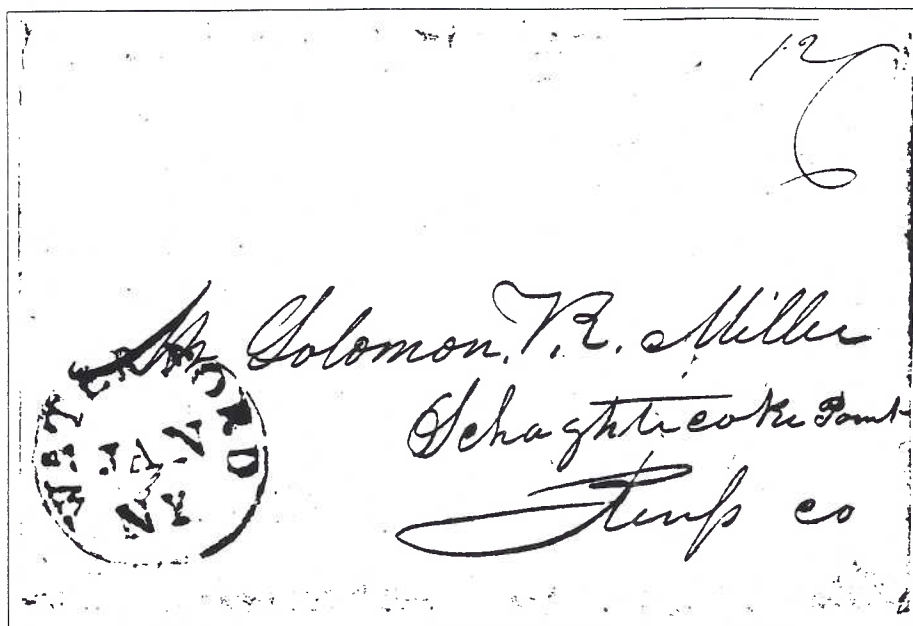 12
Mr Solomon. V.R. Miller
Schaghticoke Point
Renss co
WATERFORD
NY